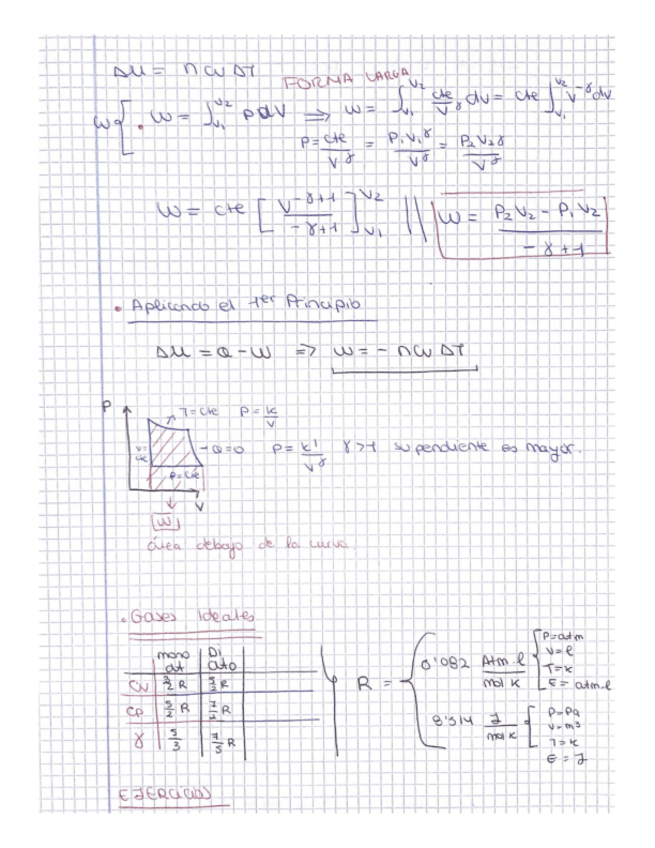 ΔU = n Cv ΔT
FORMA LARGA
W { . W = ∫_{V1}^{V2} P dV ⇒ W = ∫_{V1}^{V2} cte/V^γ dV = cte ∫_{V1}^{V2} V^-γ dV
P = cte/V^γ = P1 V1^γ/V^γ = P2 V2^γ/V^γ
W = cte [ V^-γ+1 / -γ+1 ]_{V1}^{V2} || W = P2 V2 - P1 V2 / -γ+1
. Aplicando el 1er Principio
ΔU = Q - W ⇒ W = - n Cv ΔT
P
T=cte P = k/V
V=cte
→ Q=0 P = k'/V^γ γ>1 su pendiente es mayor.
P=cte
V
|W|
área debajo de la curva
. Gases Ideales
mono at | Di ato
Cv | 3/2 R | 5/2 R
CP | 5/2 R | 7/2 R
γ | 5/3 | 7/5 R
R =
0'082 Atm·l / mol K
P=atm
V=l
T=K
E= atm·l
8'314 J / mol K
P=Pa
V=m3
T=K
E=J
EJERCICIOS